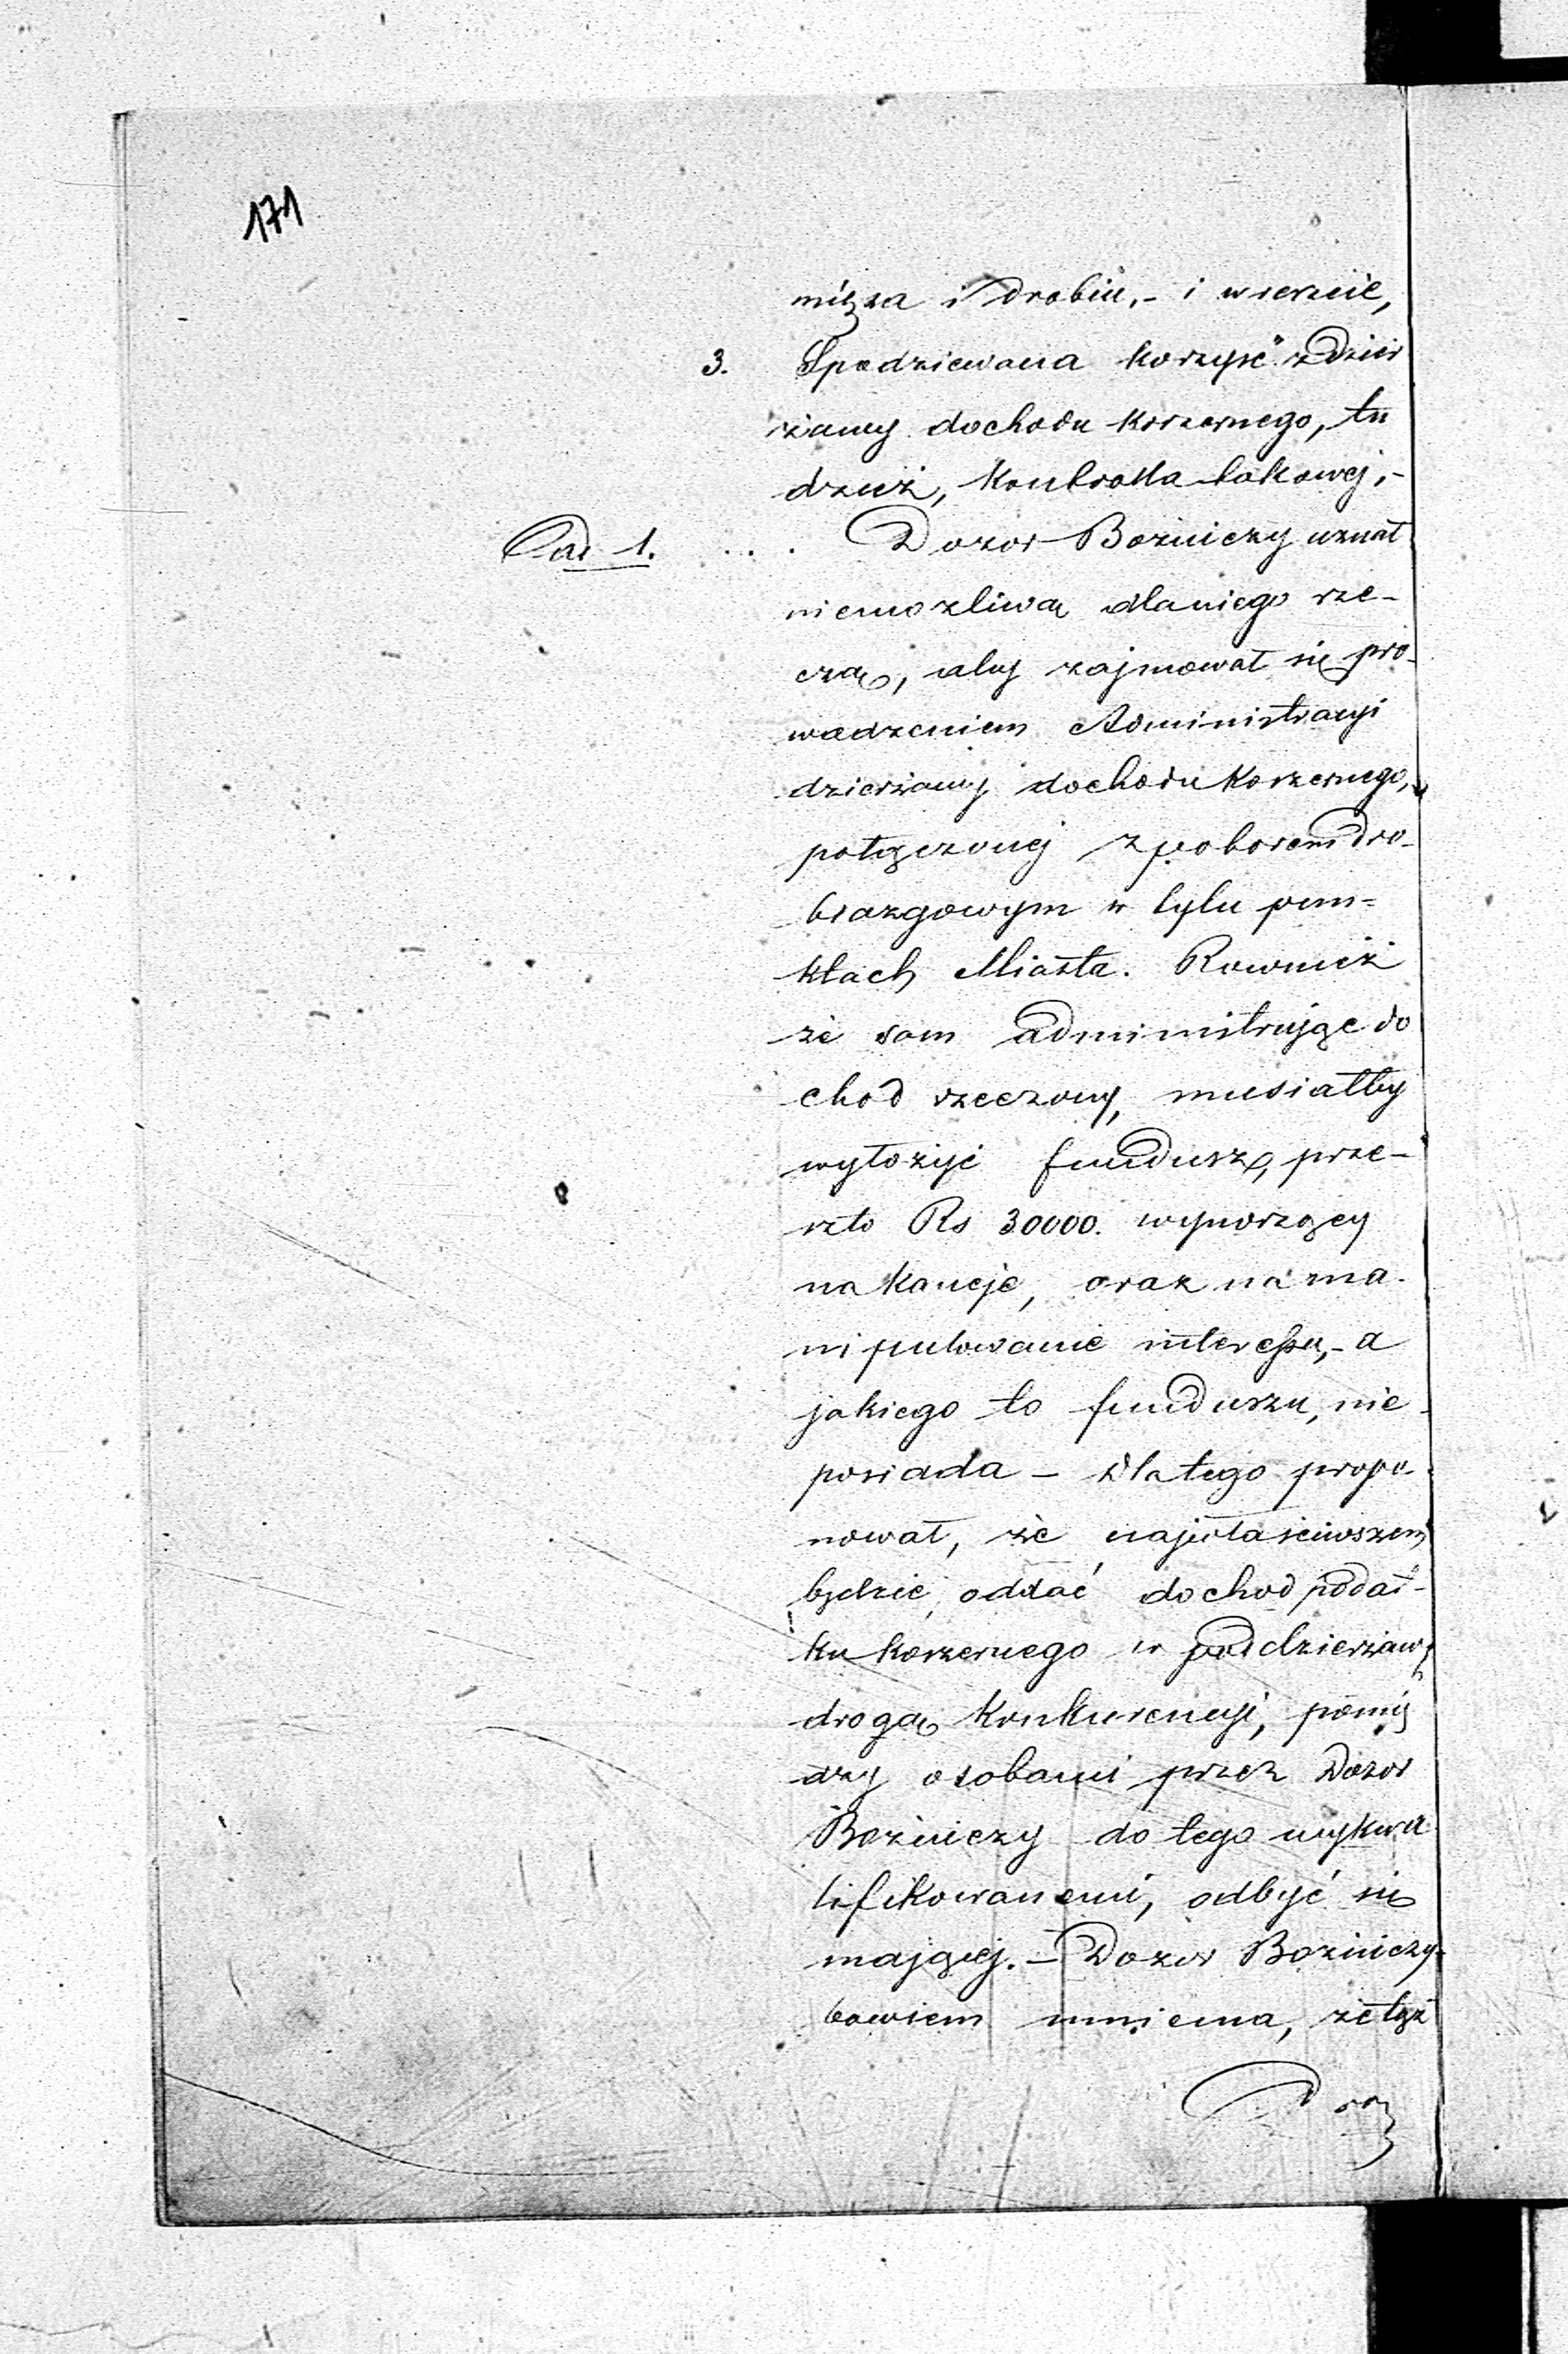 171
mięsa i drobiu,- i wresзcie,
3. Spodziewana korzyść z dzier
żawy dochodu koszernego, tu
dzież, kontrolla takowej,-
Ad 1. ... Dozor Bożniczy uznał
niemożliwą dlaniego rze-
czą, aby zajmował się pro-
wadzeniem Administracyi
dzierżawy dochodu Koszernego,
połączonej z poborem dro-
biazgowym w tylu pun-
ktach Miasta. Rownież
że sam administrując do
chod rzeczony, musiałby
wyłożyć fundusz, prze-
szło Rs 30000. wynoszący
na Kaucje, oraz na ma-
nipulowanie interessu,- a
jakiego to funduszu, nie
posiada - Dlatego propo-
nował, że najwłaściwszem
będzie, oddać dochod podat-
ku koszernego w poddzierżawę
drogą Konkurencyi, pomię
dzy osobami przez Dozor
Bożniczy do tego wykwa
lifikowanemi, odbyć się
mającej. - Dozor Bożniczy
bowiem mniema, że tąż